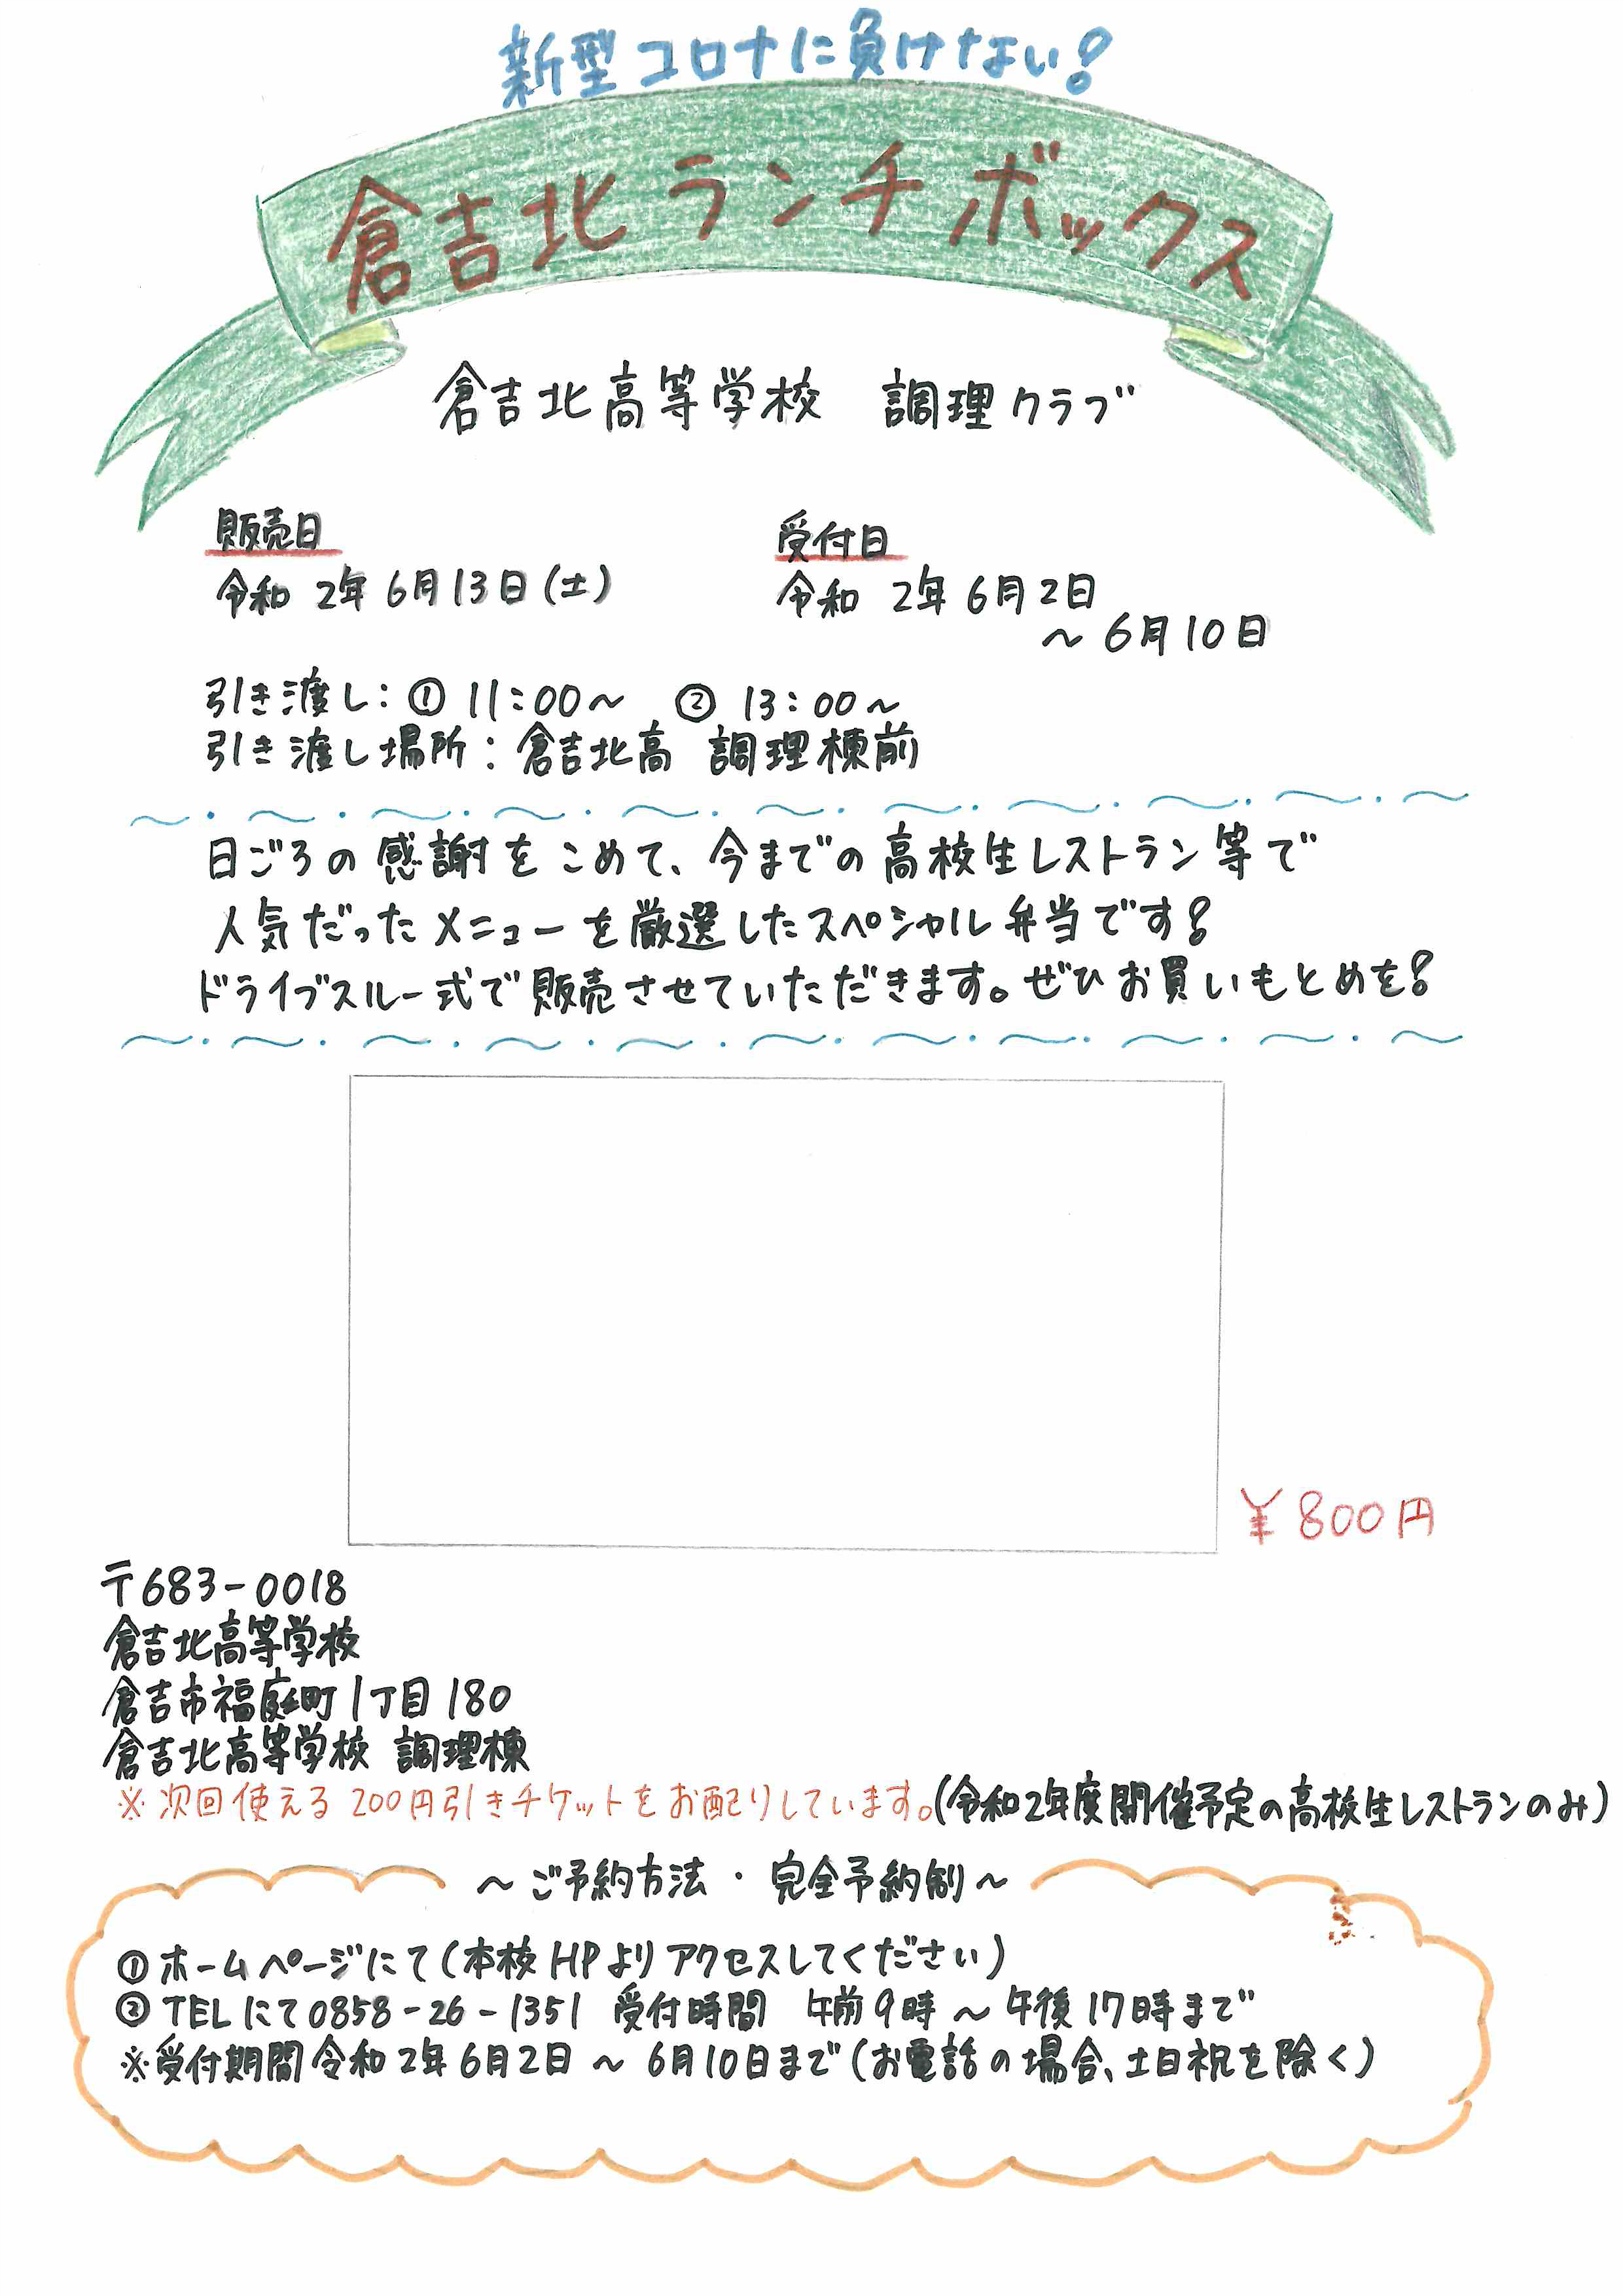 新型コロナに負けない!
倉吉北ランチボックス
倉吉北高等学校 調理クラブ
販売日
令和 2年 6月13日(土)
受付日
令和 2年 6月2日
～ 6月10日
引き渡し:① 11:00～ ② 13:00～
引き渡し場所:倉吉北高 調理棟前
日ごろの感謝をこめて、今までの高校生レストラン等で
人気だったメニューを厳選したスペシャル弁当です!
ドライブスルー式で販売させていただきます。ぜひお買いもとめを!
¥800円
〒683-0018
倉吉北高等学校
倉吉市福庭町1丁目180
倉吉北高等学校 調理棟
※次回使える200円引きチケットをお配りしています。(令和2年度開催予定の高校生レストランのみ)
～ご予約方法・完全予約制～
①ホームページにて(本校HPよりアクセスしてください)
②TELにて0858-26-1351 受付時間 午前9時～午後17時まで
※受付期間令和2年6月2日～6月10日まで(お電話の場合、土日祝を除く)